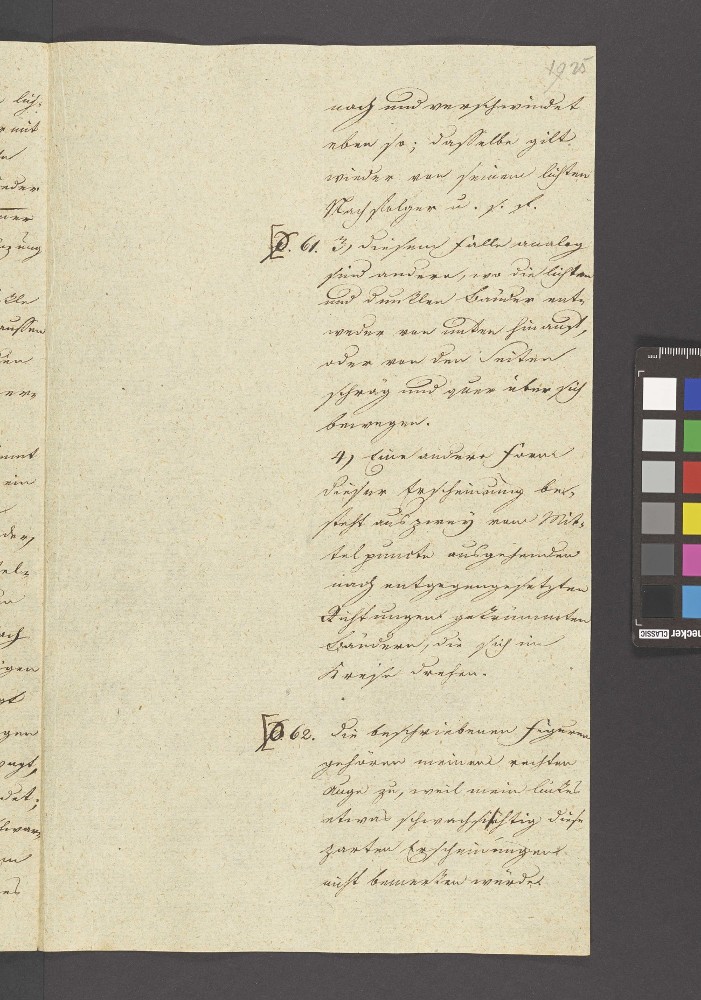 1925
nach und verschwindet
eben so; dasselbe gilt
wieder von seinem lichten
Nachfolger u. s. f.
61. 3) diesem Falle analog
sind andere, wo die lichten
und dunklen Bänder ent-
weder von unten hinauf,
oder von den Seiten
schräg und quer über sich
bewegen.
4) Eine andere Form
dieser Erscheinung be-
steht aus zwey vom Mit-
telpuncte ausgehenden
nach entgegengesetzten
Richtungen gekrümmten
Bändern, die sich im
Kreise drehen.
62. die beschriebenen Figuren
gehören meinem rechten
Auge zu, weil mein linkes
etwas schwachsichtig diese
zarten Erscheinungen
nicht bemerken würde.